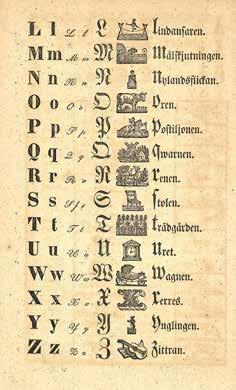 L l L l L Lindansaren.
M m M m M Målskjutningen.
N n N n N Nylandsflickan.
O o O o O Oxen.
P p P p P Postiljonen.
Q q Q q Q Qwarnen.
R r R r R Renen.
S s S s S Stolen.
T t T t T Trädgården.
U u U u U Uret.
W w W w W Wagnen.
X x X x X Xerxes.
Y y Y y Y Ynglingen.
Z z Z z Z Zittran.